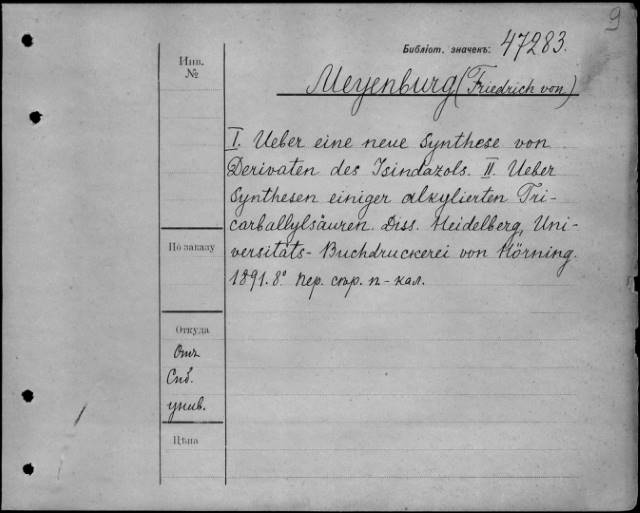 9
Библіот. значекъ: 47283.
Инв.
№
Meyenburg (Friedrich von)
I. Ueber eine neue Synthese von
Derivaten des Isindazols. II. Ueber
Synthesen einiger alkylierten Tri-
carballylsäuren. Diss. Heidelberg, Uni-
versitäts-Buchdruckerei von Hörning.
1891. 8° пер. стр. п-кал.
По заказу
Откуда
Отъ
Спб.
унив.
Цѣна